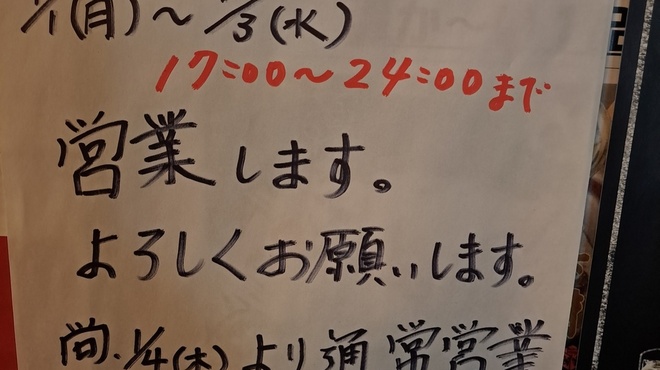 1/1(月)～1/3(水)
17:00～24:00まで
営業します。
よろしくお願いします。
尚、1/4(木)より通常営業